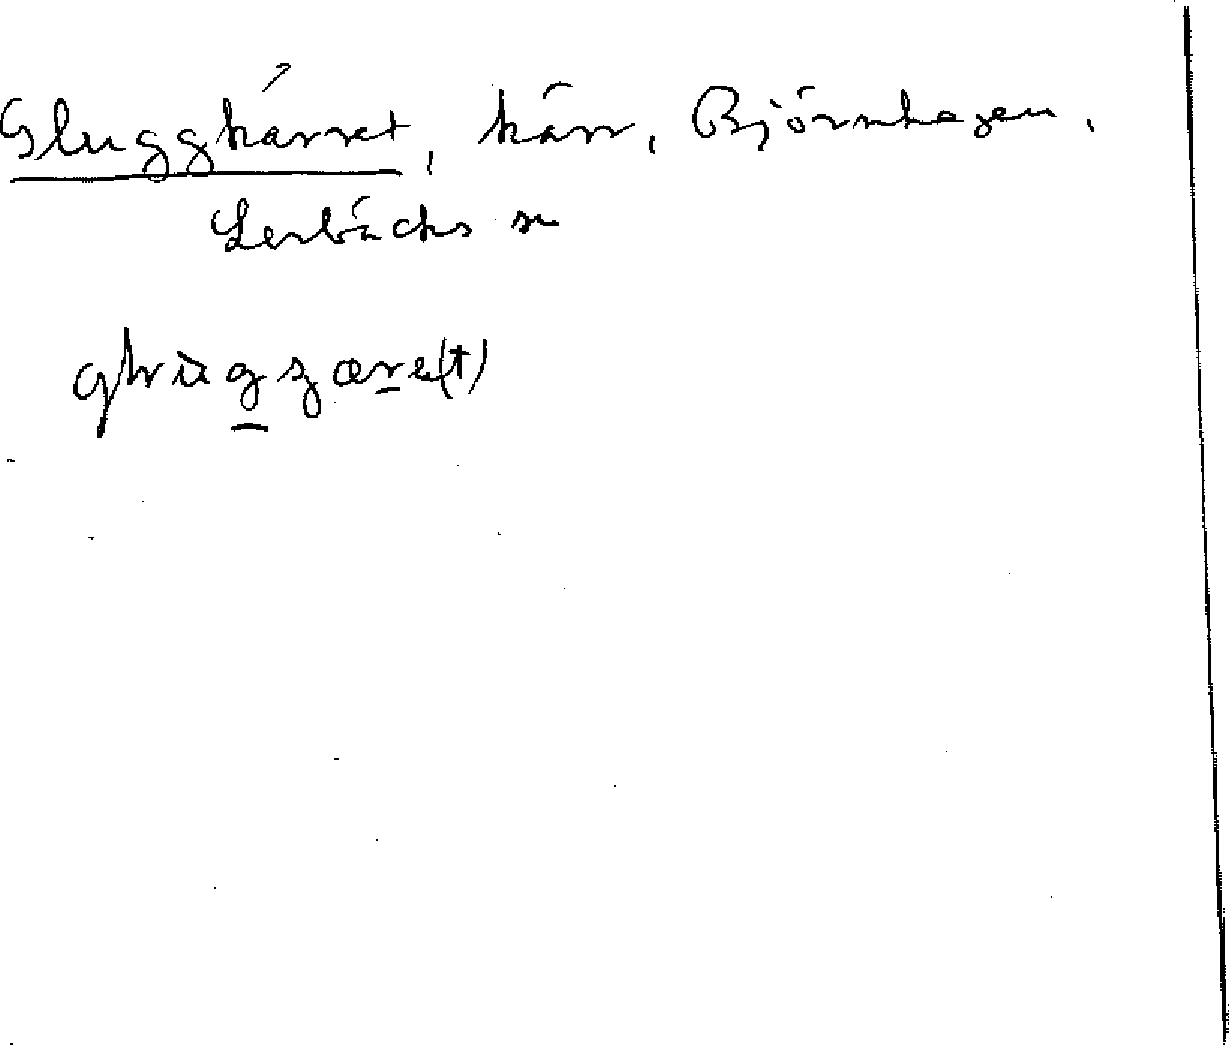 Gluggkärret, kärr, Björnhagen.
Lerbäcks sn